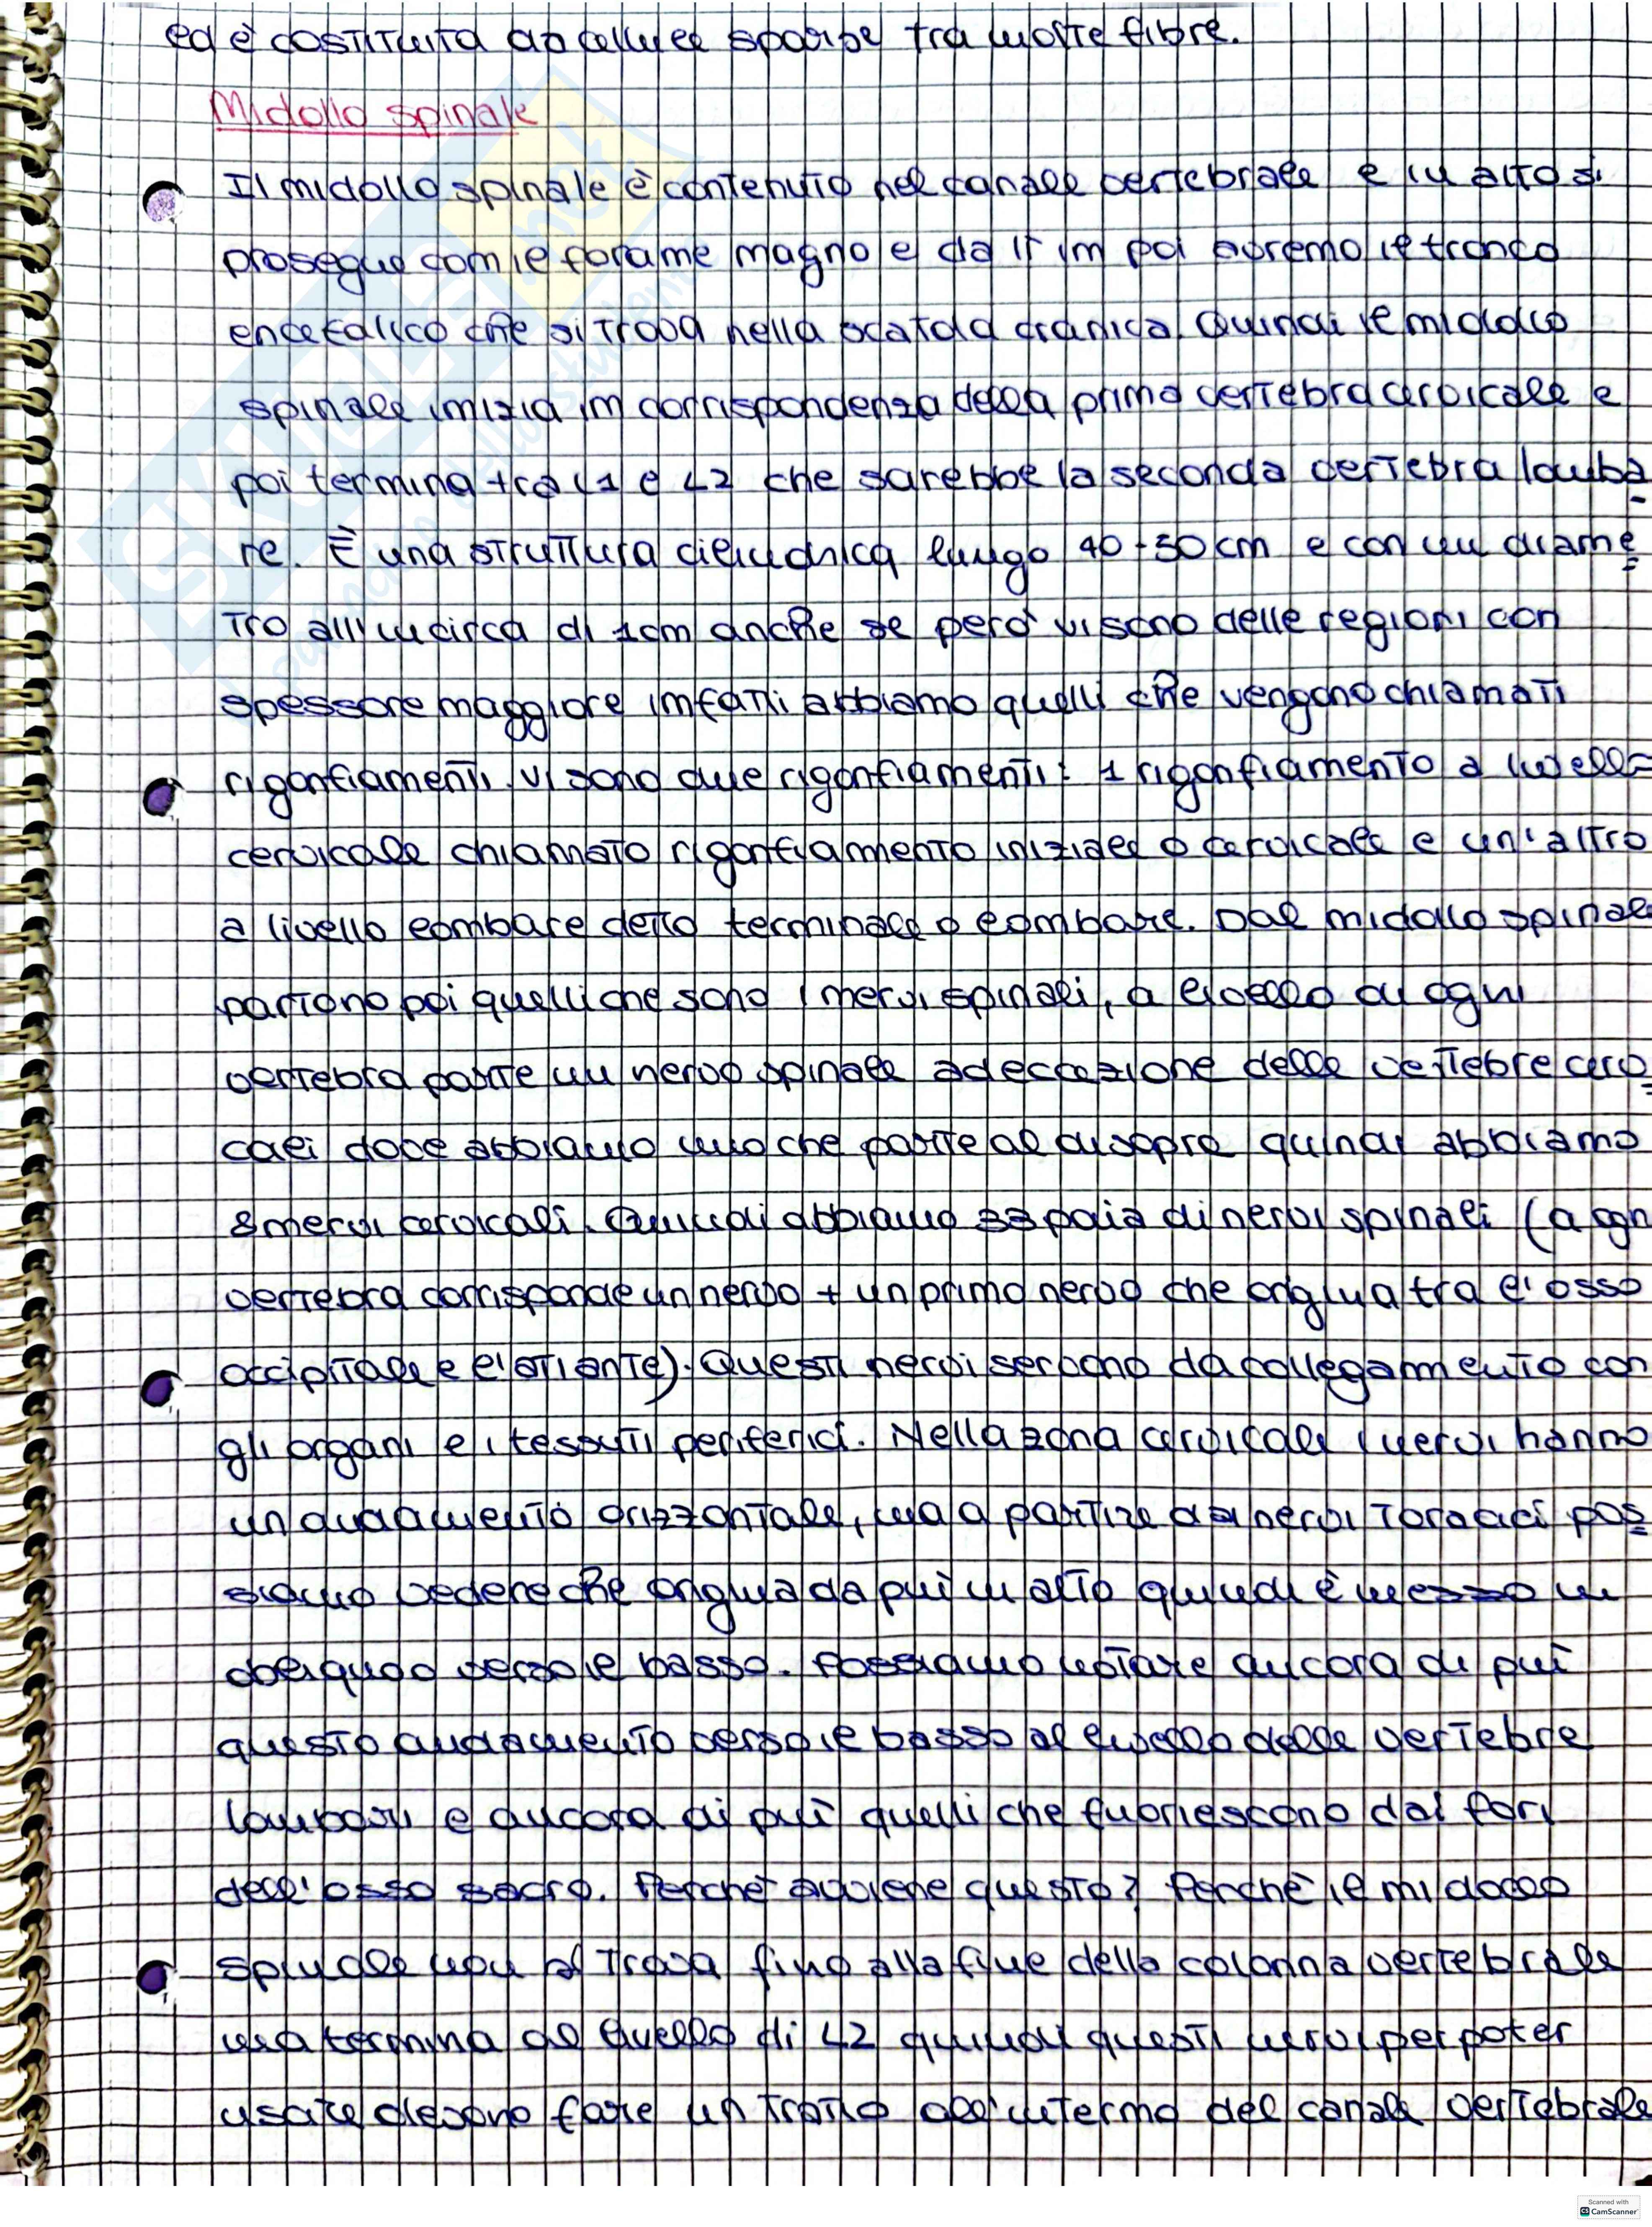 ed è costituita da cellule sparse tra molte fibre.
Midollo spinale
Il midollo spinale è contenuto nel canale vertebrale e in alto si
prosegue con il forame magno e da lì in poi avremo il tronco
encefalico che si trova nella scatola cranica. Quindi il midollo
spinale inizia in corrispondenza della prima vertebra cervicale e
poi termina tra L1 e L2 che sarebbe la seconda vertebra lomba
re. È una struttura cilindrica lungo 40-50 cm e con un diame
tro all'incirca di 1cm anche se però vi sono delle regioni con
spessore maggiore infatti abbiamo quelli che vengono chiamati
rigonfiamenti. Vi sono due rigonfiamenti: 1 rigonfiamento a livello
cervicale chiamato rigonfiamento iniziale o cervicale e un'altro
a livello lombare detto terminale o lombare. Dal midollo spinale
partono poi quelli che sono i nervi spinali, a livello di ogni
vertebra parte un nervo spinale ad eccezione delle vertebre cerv
cali dove abbiamo uno che parte al di sopra quindi abbiamo
8 nervi cervicali. Quindi abbiamo 33 paia di nervi spinali (a ogn
vertebra corrisponde un nervo + un primo nervo che origina tra l'osso
occipitale e l'atlante). Questi nervi servono da collegamento con
gli organi e i tessuti periferici. Nella zona cervicale i nervi hanno
un andamento orizzontale, ma a partire dai nervi toracici pos
siamo vedere che origina da più in alto quindi è messo in
obliquo verso il basso. Possiamo notare ancora di più
questo andamento verso il basso al livello delle vertebre
lombari e ancora di più quelli che fuoriescono dai fori
dell'osso sacro. Perchè avviene questo? Perchè il midollo
spinale non si trova fino alla fine della colonna vertebrale
ma termina al livello di L2 quindi questi nervi per poter
uscire devono fare un tratto all'interno del canale vertebrale
SKUOLA.net
paradiso dello studente
Scanned with
CS CamScanner